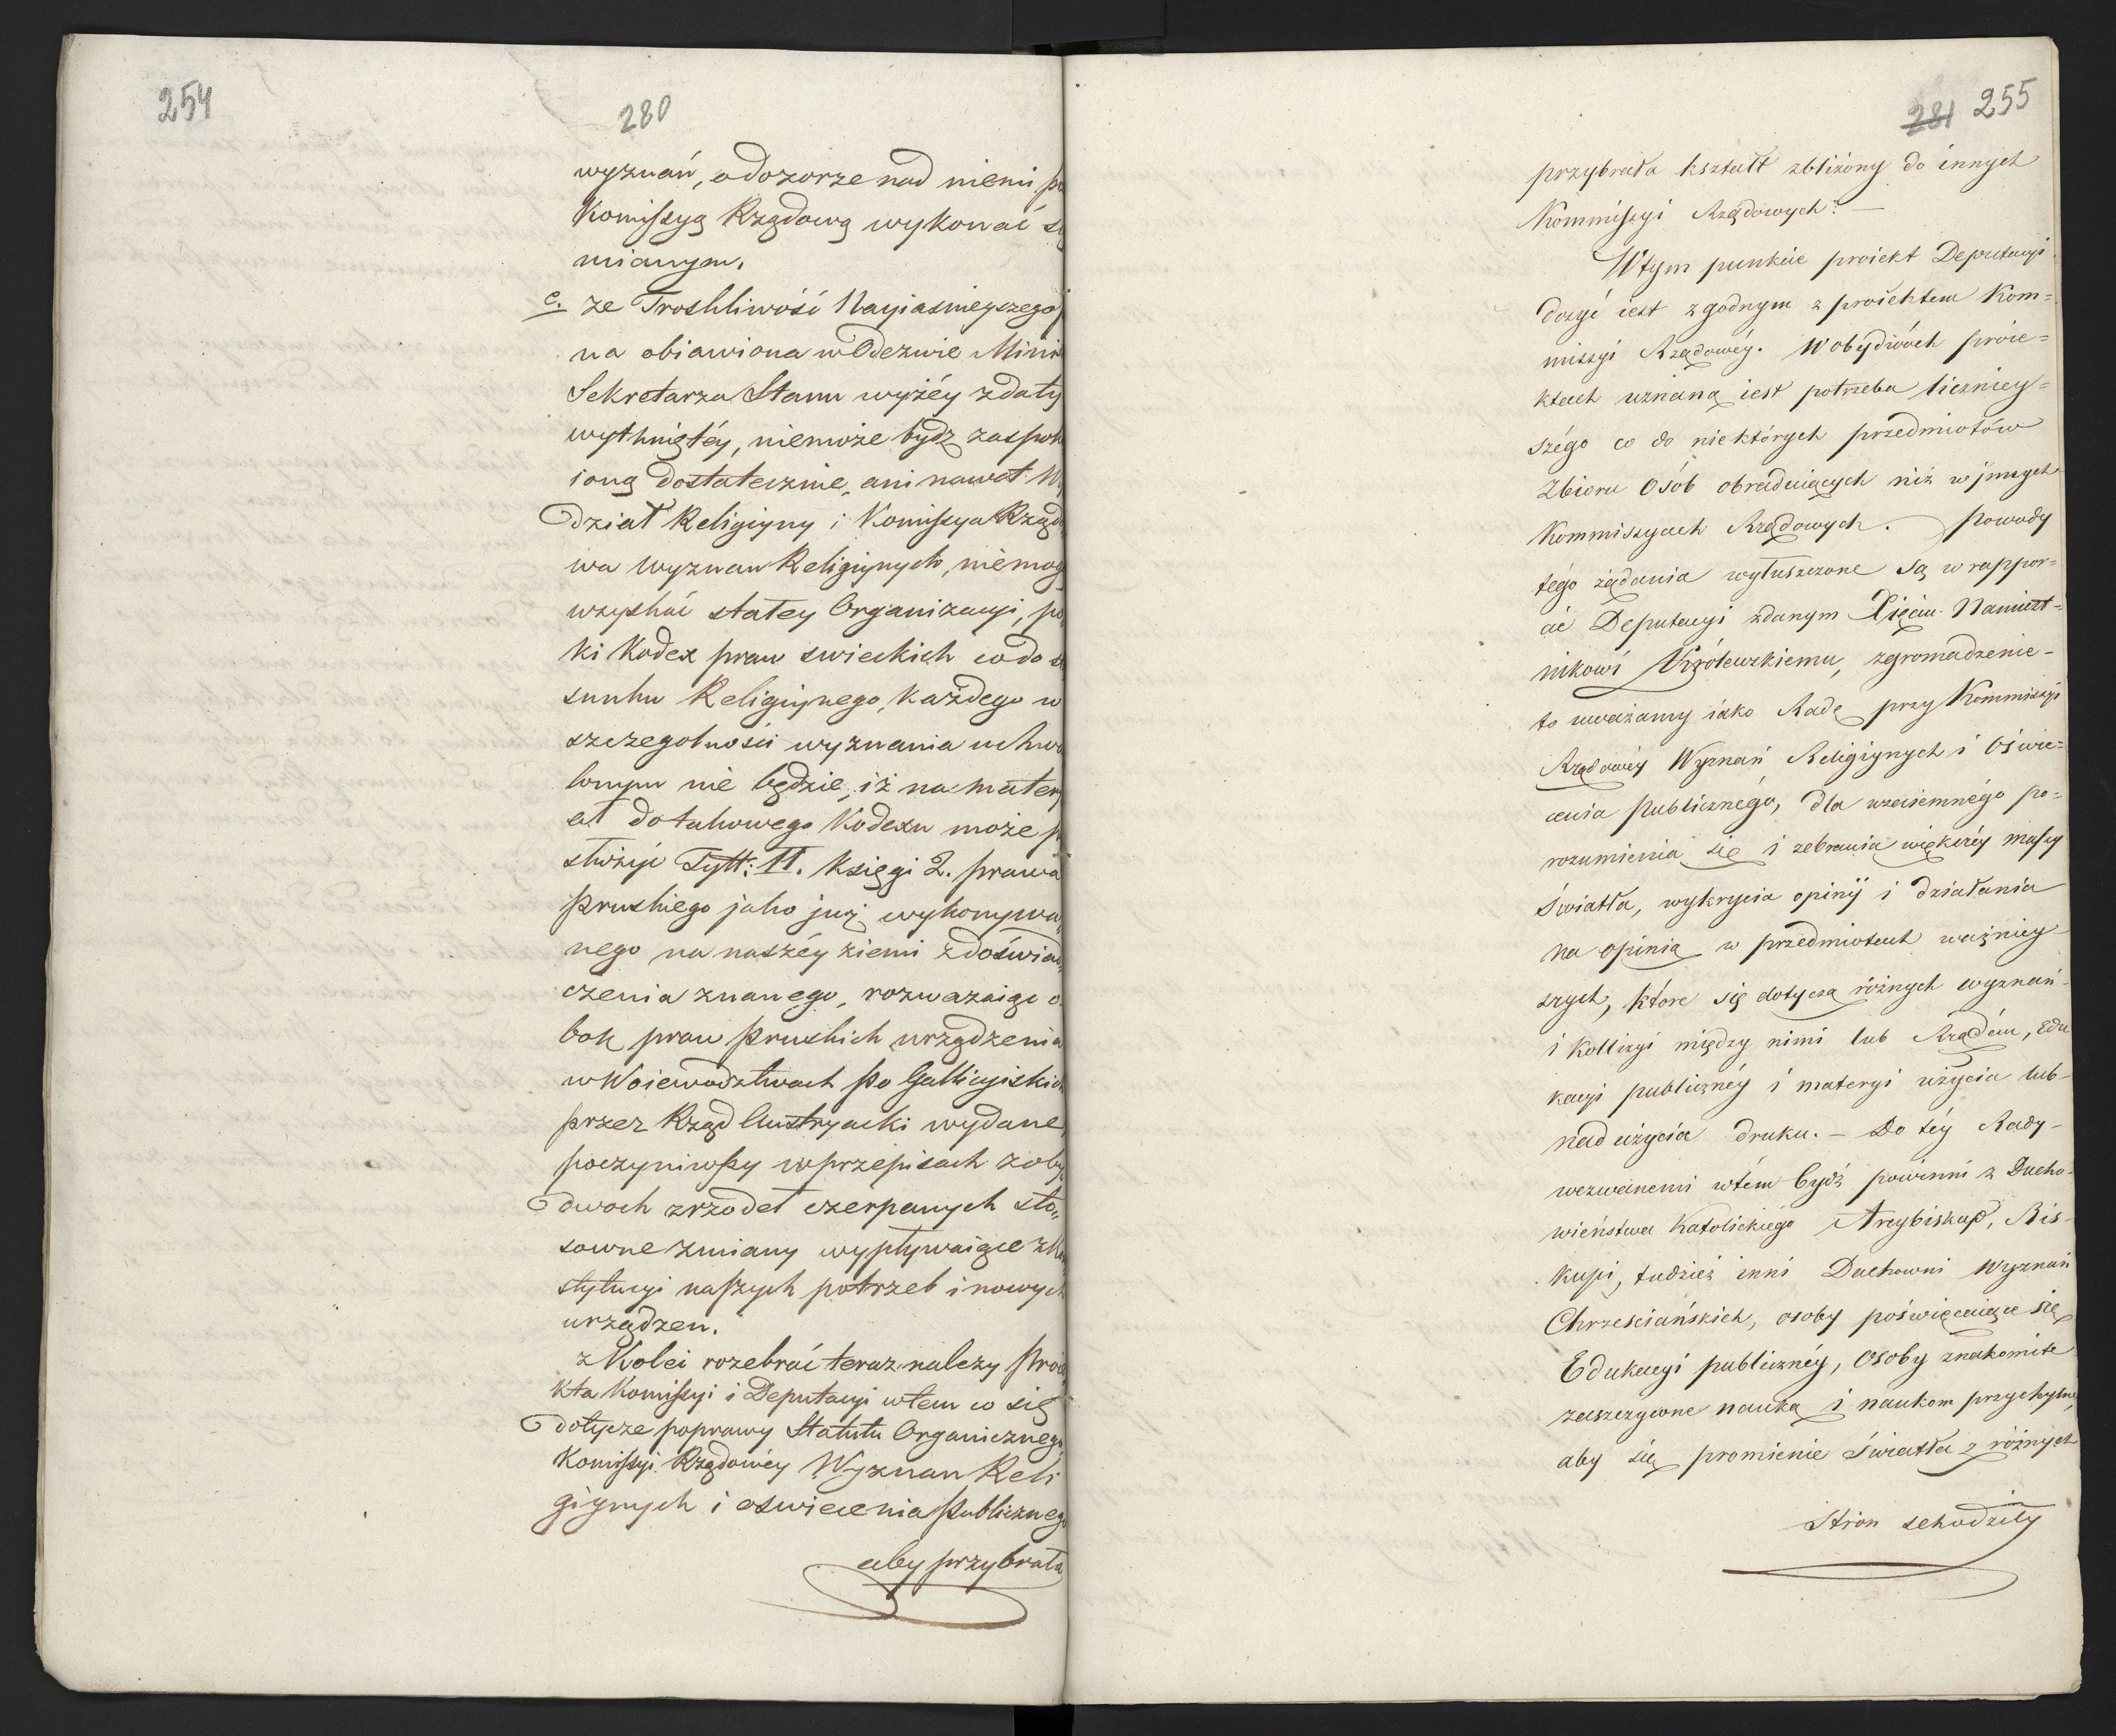 254
280
wyznań, o dozorze nad niemi
Komissyą Rządową wykonać
mianym.
c. że Troskliwość Nayiaśnieyszego
na obiawiona w Odezwie Mini
Sekretarza Stanu wyżéy z daty
wytkniętéy, niemoże bydź zaspok
ioną dostatecznie, ani nawet Wy
dział Religiyny i Komissya Rządo
wa wyznan Religiynych, niemog
wzyskać stałey Organizacyi, po
ki Kodex praw swieckich co do
sunku Religiynego, każdego w
szczegolności wyznania uchwa
lonym nie będzie, iż na matery
ał do takowego Kodexu może
służyć Tytł: 11. Księgi 2. prawa
Pruskiego jako już wykonywa„
nego na naszéy ziemi z doświad„
czenia znanego, rozważaiąc o„
bok praw Pruskich urządzenia
w Woiewodztwach po Gallicyiskich
przez Rząd Austryacki wydane,
poczyniwszy w przepisach z oby
dwoch zrzodeł czerpanych sto„
sowne zmiany wypływaiące z Kon
stytucyi naszych potrzeb i nowych
urządzen.
z Kolei rozebrać teraz należy Proie
kta Komissyi i Deputacyi w tem co się
dotycze poprawy Statutu Organicznego
Komissyi Rządowéy Wyznan Reli
giynych i oswiecenia Publicznego
aby przybrała
281 255
przybrała kształt zbliżony do innych
Kommissyi Rządowych: —
W tym punkcie proiekt Deputacyi
dosyć iest zgodnym z proiektem Kom=
missyi Rządowéy. W obydwóch proie=
ktach uznaną iest potrzeba liczniey=
szégo co do niektórych przedmiotów
Zbioru Osób obraduiących niż w jnnych
Kommissyach Rządowych. Powody
tégo żądania wyłuszczone są w rappor=
cie Deputacyi zdanym Xięciu Namiest=
nikowi Królewskiemu, zgromadzenie-
to uważamy iako Radę przy Kommissyi
Rządowéy Wyznań Religiynych i Oświe=
cenia Publicznégo, dla wzaiemnégo po=
rozumienia się i zebrania większéy massy
Światła, wykrycia opinij i działania
na opinią w przedmiotach ważniey-
szych, które się dotyczą różnych wyznań
i Kollizyi między nimi lub Rządém, Edu
kacyi publicznéy i materyi użycia lub-
nadużycia druku. — Do téy Rady-
wezwanemi w tém bydź powinni z Ducho-
wieństwa Katolickiégo Arcybiskup, Bis-
kupi, tudzież inni Duchowni Wyznań
Chrześciańskich, osoby poświęcaiące się
Edukacyi publicznéy, Osoby znakomite
zaszczycone nauką i naukom przychylne,
aby się promienie Światła z różnych
Stron schodziły